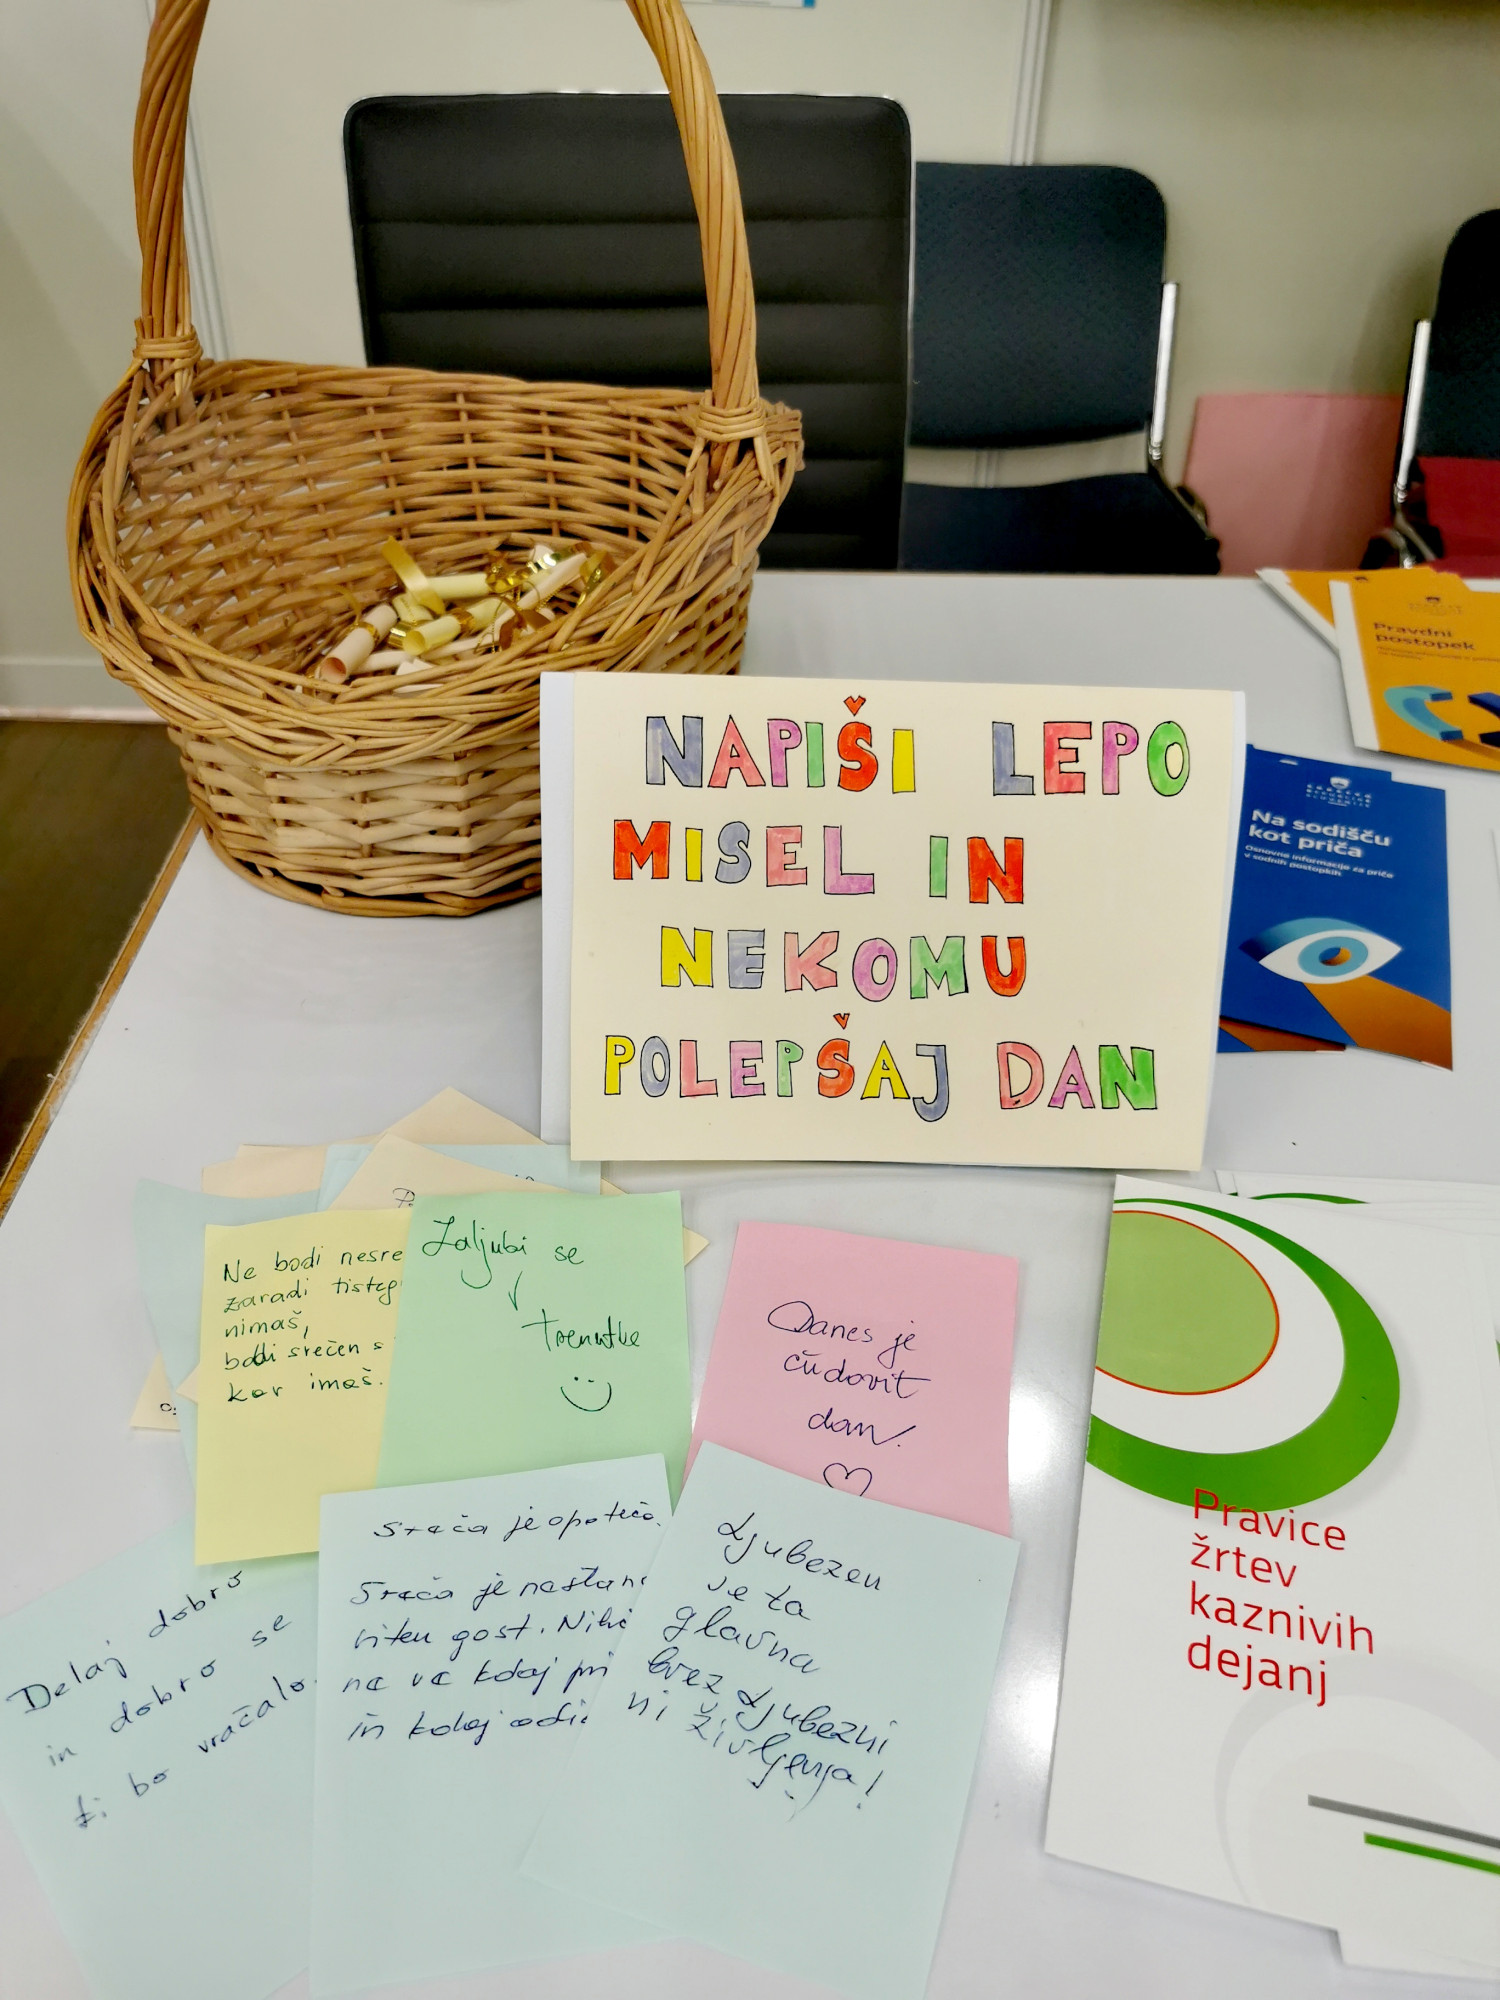 NAPIŠI LEPO
MISEL IN
NEKOMU
POLEPŠAJ DAN
Pravdni
postopek
Na sodišču
kot priča
Osnovne informacije za priče
v sodnih postopkih
Ne bodi nesre
zaradi tisteg
nimaš,
bodi srečen s
kar imaš.
Zaljubi se
trenutke
Danes je
čudovit
dan.
Delaj dobro
in dobro se
ti bo vračalo.
Sreča je opoteča.
Sreča je nestano
viten gost. Nihč
ne ve kdaj pri
in kdaj odi
Ljubezen
je ta
glavna
brez ljubezni
ni življenja!
Pravice
žrtev
kaznivih
dejanj